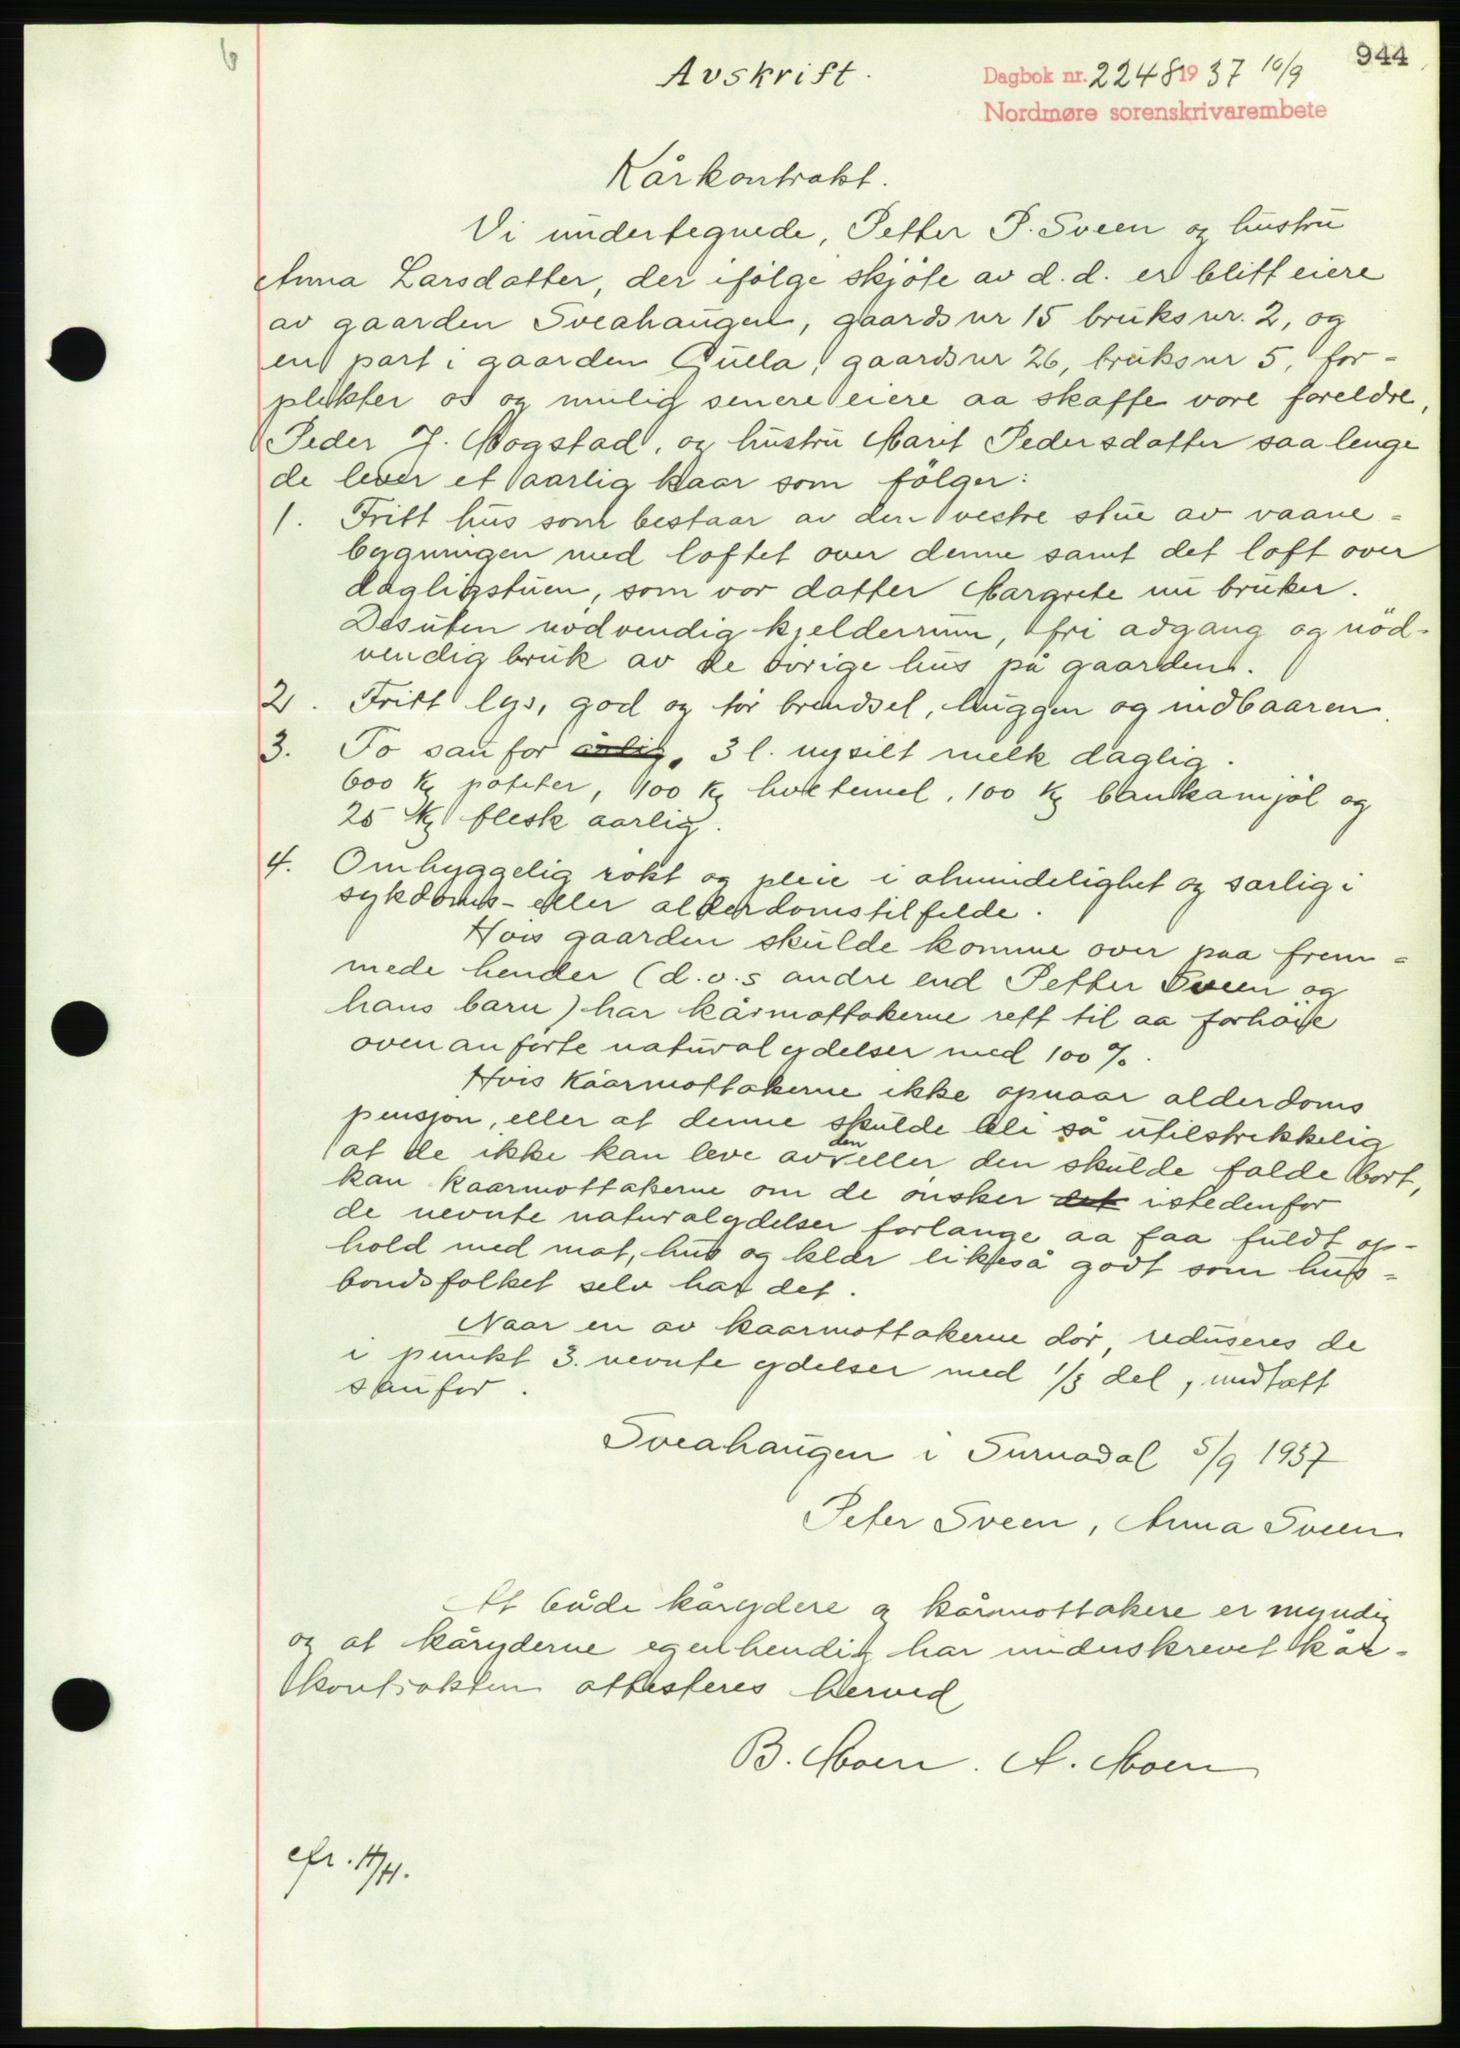 6
944
Avskrift.
Dagbok nr. 2248 1937 10/9
Nordmøre sorenskrivarembete
Kårkontrakt.
Vi undertegnede, Petter P. Sveen og hustru
Anna Larsdatter, der ifølge skjøte av d.d. er blitt eiere
av gaarden Sveahaugen, gaards nr 15 bruks nr. 2, og
en part i gaarden Gulla, gaards nr 26, bruks nr 5, for-
plikter os og mulig senere eiere aa skaffe vore foreldre,
Peder J. Mogstad, og hustru Marit Pedersdatter saa lenge
de lever et aarlig kaar som følger:
1. Fritt hus som bestaar av den vestre stue av vaane-
bygningen med loftet over denne samt det loft over
dagligstuen, som vor datter Margrete nu bruker.
Desuten nødvendig kjelderrum, fri adgang og nöd-
vendig bruk av de övrige hus på gaarden.
2. Fritt lys, god og tør brendsel, huggen og indbaaren.
3. To saufor årlig, 3 l. nysilt melk daglig.
600 Kg poteter, 100 Kg hvetemel, 100 Kg bankamjöl og
25 Kg flesk aarlig.
4. Omhyggelig røkt og pleie i almindelighet og særlig i
sykdoms- eller alderdomstilfelde.
Hvis gaarden skulde komme over paa frem-
mede hender (d.v.s andre end Petter Sveen og
hans barn) har kårmottakerne rett til aa forhöie
ovenanførte naturalydelser med 100 %.
Hvis Kaarmottakerne ikke opnaar alderdoms
pensjon, eller at denne skulde bli så utilstrekkelig
at de ikke kan leve av den eller den skulde falde bort,
kan kaarmottakerne om de ønsker det istedenfor
de nevnte naturalydelser forlange aa faa fuldt op-
hold med mat, hus og klær likeså godt som hus-
bondsfolket selv har det.
Naar en av kaarmottakerne dør, reduseres de
i punkt 3. nevnte ydelser med 1/3 del, undtatt
saufor.
Sveahaugen i Surnadal 5/9 1937
Peter Sveen, Anna Sveen
At både kårydere og kårmottakere er myndig
og at kåryderne egenhendig har underskrevet kår-
kontrakten attesteres herved
B. Moen. A. Moen